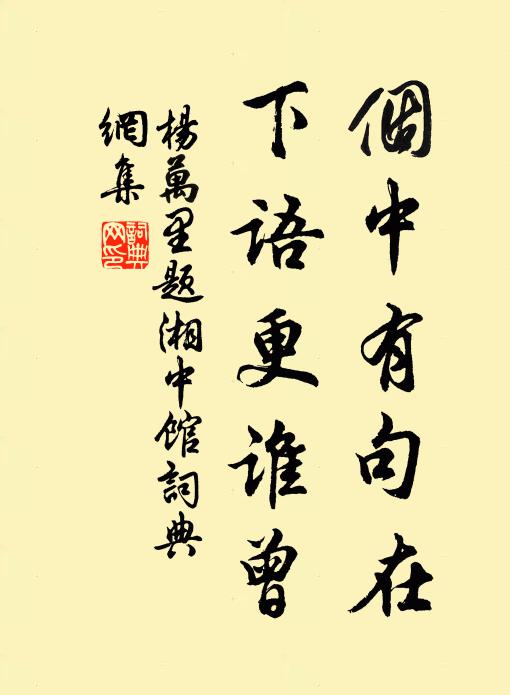 個中有句在
下語更誰曾
楊萬里題湘中館詞典
網集
詞典
网印